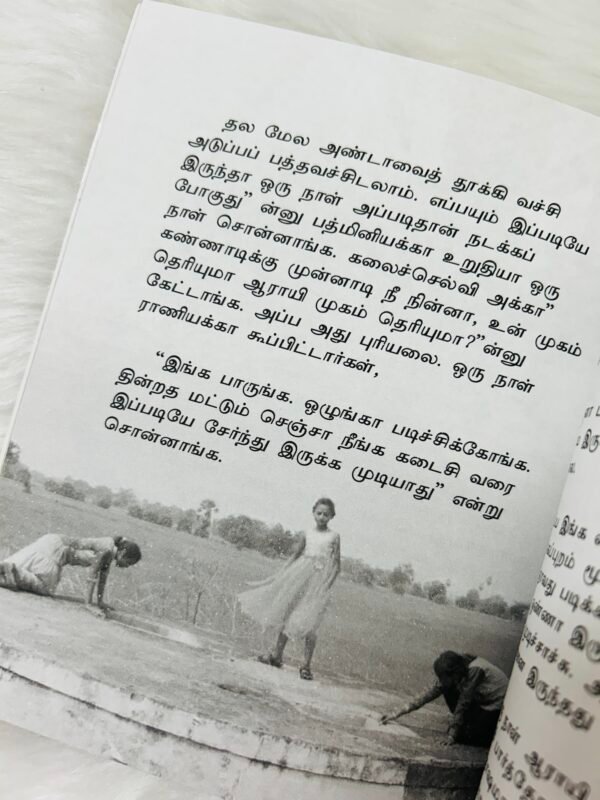 தல மேல அண்டாவைத் தூக்கி வச்சி
அடுப்பப் பத்தவச்சிடலாம். எப்பயும் இப்படியே
இருந்தா ஒரு நாள் அப்படிதான் நடக்கப்
போகுது” ன்னு பத்மினியக்கா உறுதியா ஒரு
நாள் சொன்னாங்க. கலைச்செல்வி அக்கா”
கண்ணாடிக்கு முன்னாடி நீ நின்னா, உன் முகம்
தெரியுமா ஆராயி முகம் தெரியுமா?”ன்னு
கேட்டாங்க. அப்ப அது புரியலை. ஒரு நாள்
ராணியக்கா கூப்பிட்டார்கள்,
“இங்க பாருங்க. ஒழுங்கா படிச்சிக்கோங்க.
தின்றத மட்டும் செஞ்சா நீங்க கடைசி வரை
இப்படியே சேர்ந்து இருக்க முடியாது” என்று
சொன்னாங்க.
இங்க
படிக்க
இருந்தது
ஆராயி